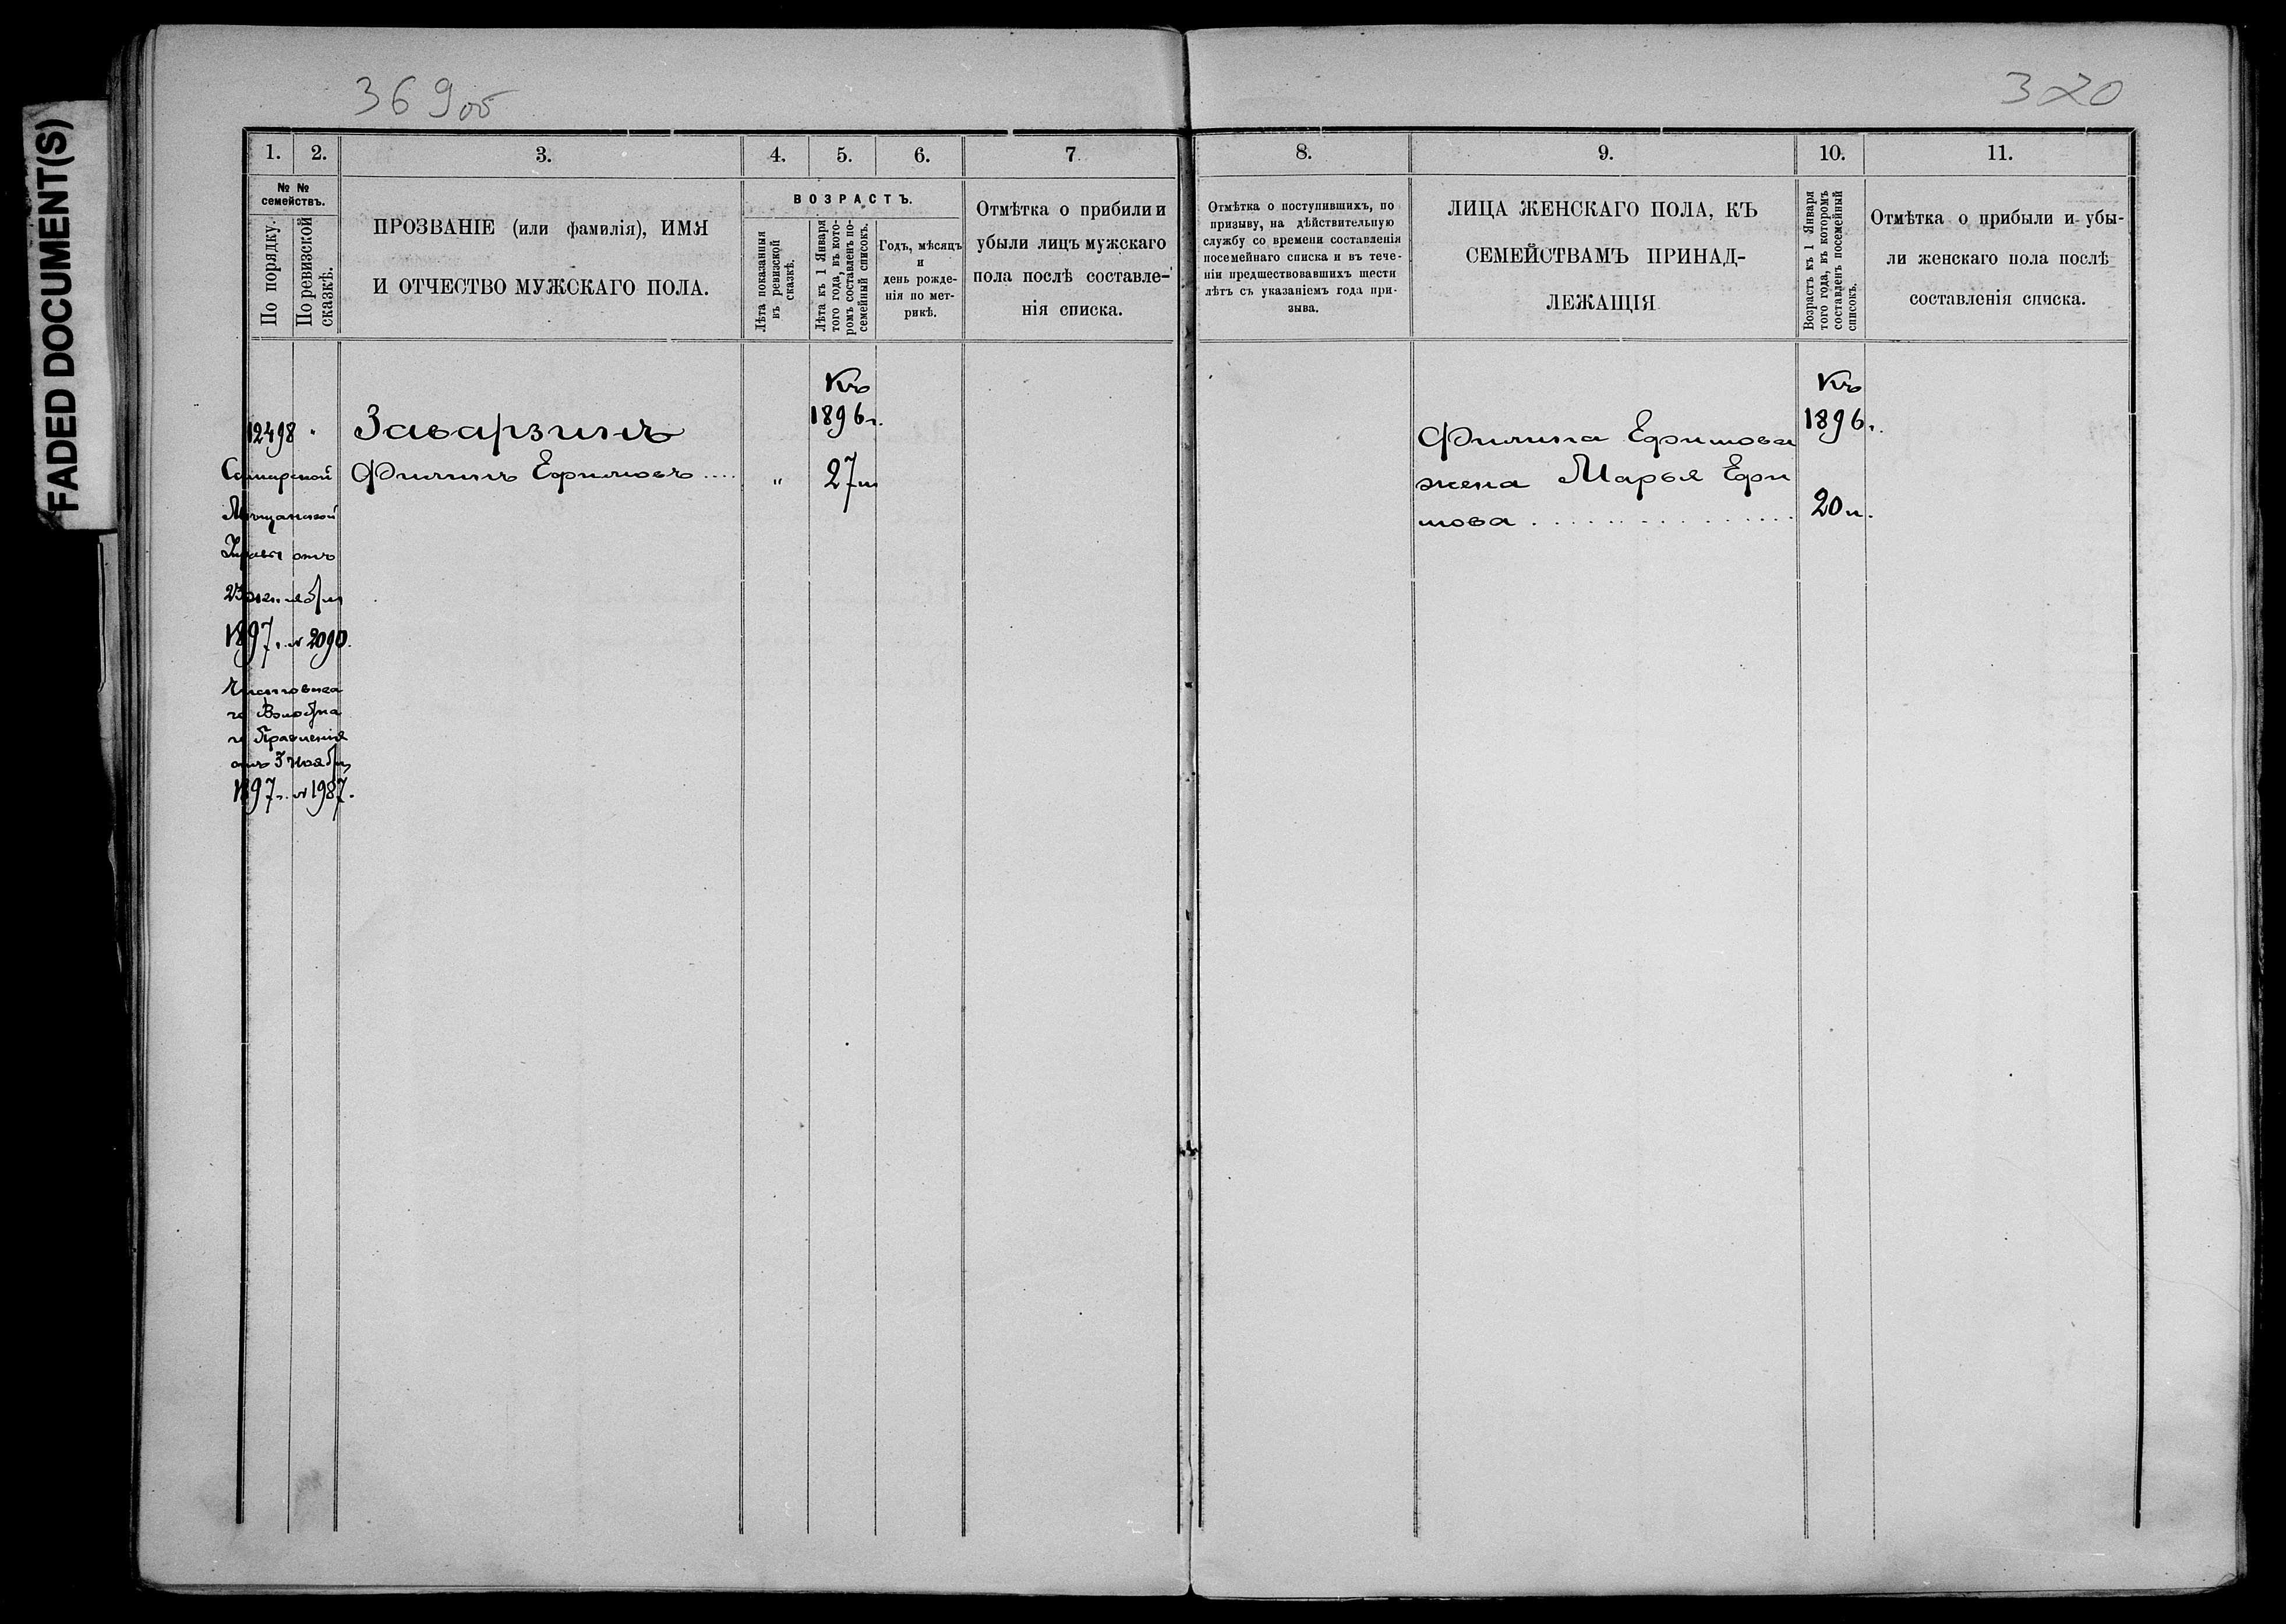 FADED DOCUMENT(S)
369 об
370
1.
2.
3.
4.
5.
6.
7
№ №
семействъ.
По порядку.
По ревизской
сказкѣ.
ПРОЗВАНІЕ (или фамилія), ИМЯ
И ОТЧЕСТВО МУЖСКАГО ПОЛА.
ВОЗРАСТЪ.
Лѣта показанныя
въ ревизской
сказкѣ.
Лѣта къ 1 Января
того года, въ кото-
ромъ составленъ по-
семейный списокъ.
Годъ, мѣсяцъ
и
день рожде-
нія по мет-
рикѣ.
Отмѣтка о прибыли и
убыли лицъ мужскаго
пола послѣ составле-
нія списка.
8.
9.
10.
11.
Отмѣтка о поступившихъ, по
призыву, на дѣйствительную
службу со времени составленія
посемейнаго списка и въ тече-
ніи предшествовавшихъ шести
лѣтъ съ указаніемъ года при-
зыва.
ЛИЦА ЖЕНСКАГО ПОЛА, КЪ
СЕМЕЙСТВАМЪ ПРИНАД-
ЛЕЖАЩІЯ
Возрастъ къ 1 Января
того года, въ которомъ
составленъ посемейный
списокъ.
Отмѣтка о прибыли и убы-
ли женскаго пола послѣ
составленія списка.
12498 "
Самарской
Мѣщанской
Управы отъ
1897 г. № 2090.
го Волостна
го Правленія
отъ 3 ноября
1897 г. № 1987.
Заварзинъ
Филипъ Ефимовъ ....
"
Къ
1896 г.
27 л
Филипа Ефимова
жена Марья Ефи
мова ................
Къ
1896 г.
20 л.